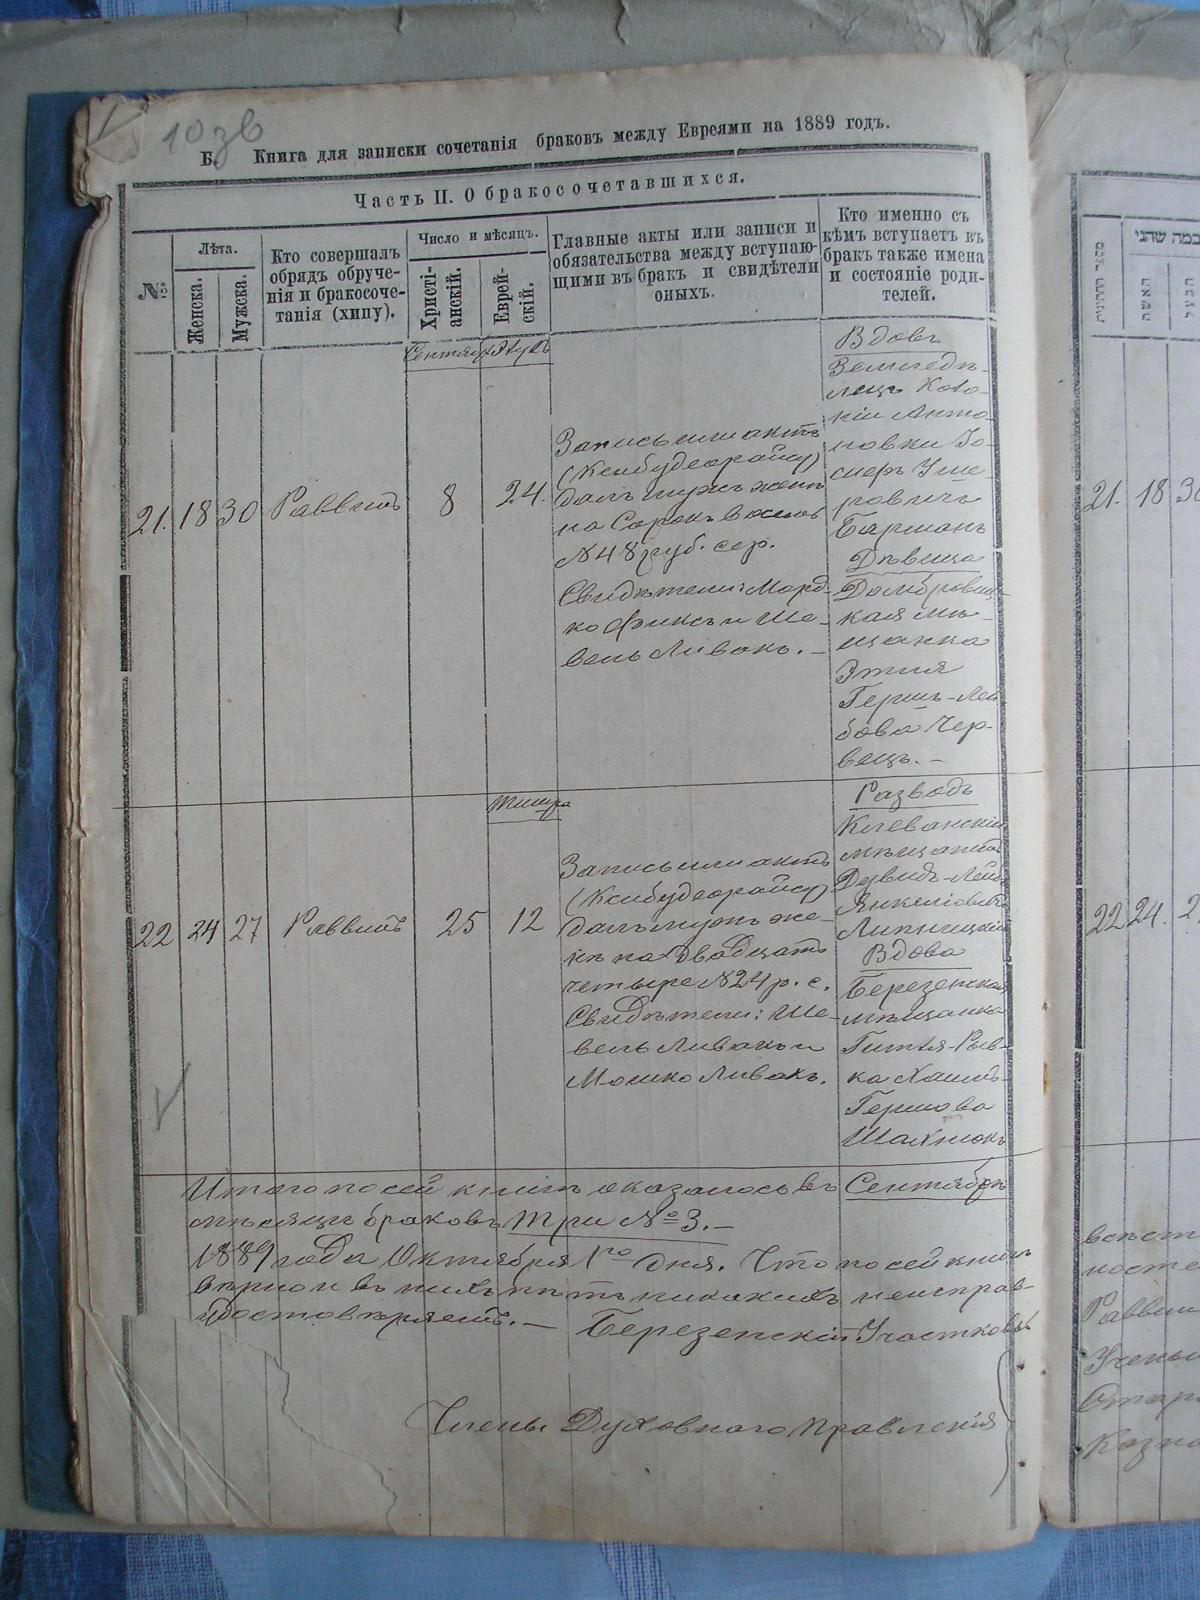 10зв
Б. Книга для записки сочетанія браковъ между Евреями на 1889 годъ.
Часть II. О бракосочетавшихся.
№
Лѣта.
Женска.
Мужска.
Кто совершалъ
обрядъ обруче-
нія и бракосоче-
танія (хипу).
Число и мѣсяцъ.
Христі-
анскій.
Еврей-
скій.
Главные акты или записи и
обязательства между вступаю-
щими въ бракъ и свидѣтели
оныхъ.
Кто именно съ
кѣмъ вступаетъ въ
бракъ также имена
и состояніе роди-
телей.
21. 18 30 Раввинъ 8 24.
Запись или актъ
(Ксибудеорайсу)
далъ мужъ женѣ
на Сорокъ восемь
№ 48 руб. сер.
Свидѣтели: Морд-
ко Фиксъ и Ше-
вель Ливакъ. –
Вдовъ
Земледѣ-
лецъ Коло-
ніи Анто-
новки Іо-
сифъ Уше-
ровичъ
Барманъ
Дѣвица
Домбровиц-
кая мѣ-
щанка
Этля
Гершъ-Лей-
бова Чер-
вецъ. –
Тишри
22 24 27 Раввинъ 25 12
Запись или актъ
(Ксибудеорайсу)
далъ мужъ же-
нѣ на Двадцать
четыре № 24 р. с.
Свидѣтели: Ше-
вель Ливакъ и
Мошко Ливакъ.
Разводъ
Клеванскій
мѣщанинъ
Дувидъ-Лейб
Янкеліовичъ
Липницкій
Вдова
Березенская
мѣщанка
Гитля-Рыв-
ка Хаимъ-
Гершова
Шахнюкъ
Итого по сей книгѣ оказалось въ Сентябрѣ
мѣсяцѣ браковъ три № 3. –
1889 года Октября 1го дня. Что по сей книгѣ
вѣрно и въ нихъ нѣтъ никакихъ неисправ-
удостовѣряетъ. – Березенскій Участковый
Члены Духовнаго Правленія
מספר החתונות
כמה שהני
האשה
הבעל
21. 18 30
22 24. 2
Раввин
Учены
Стар
Казна